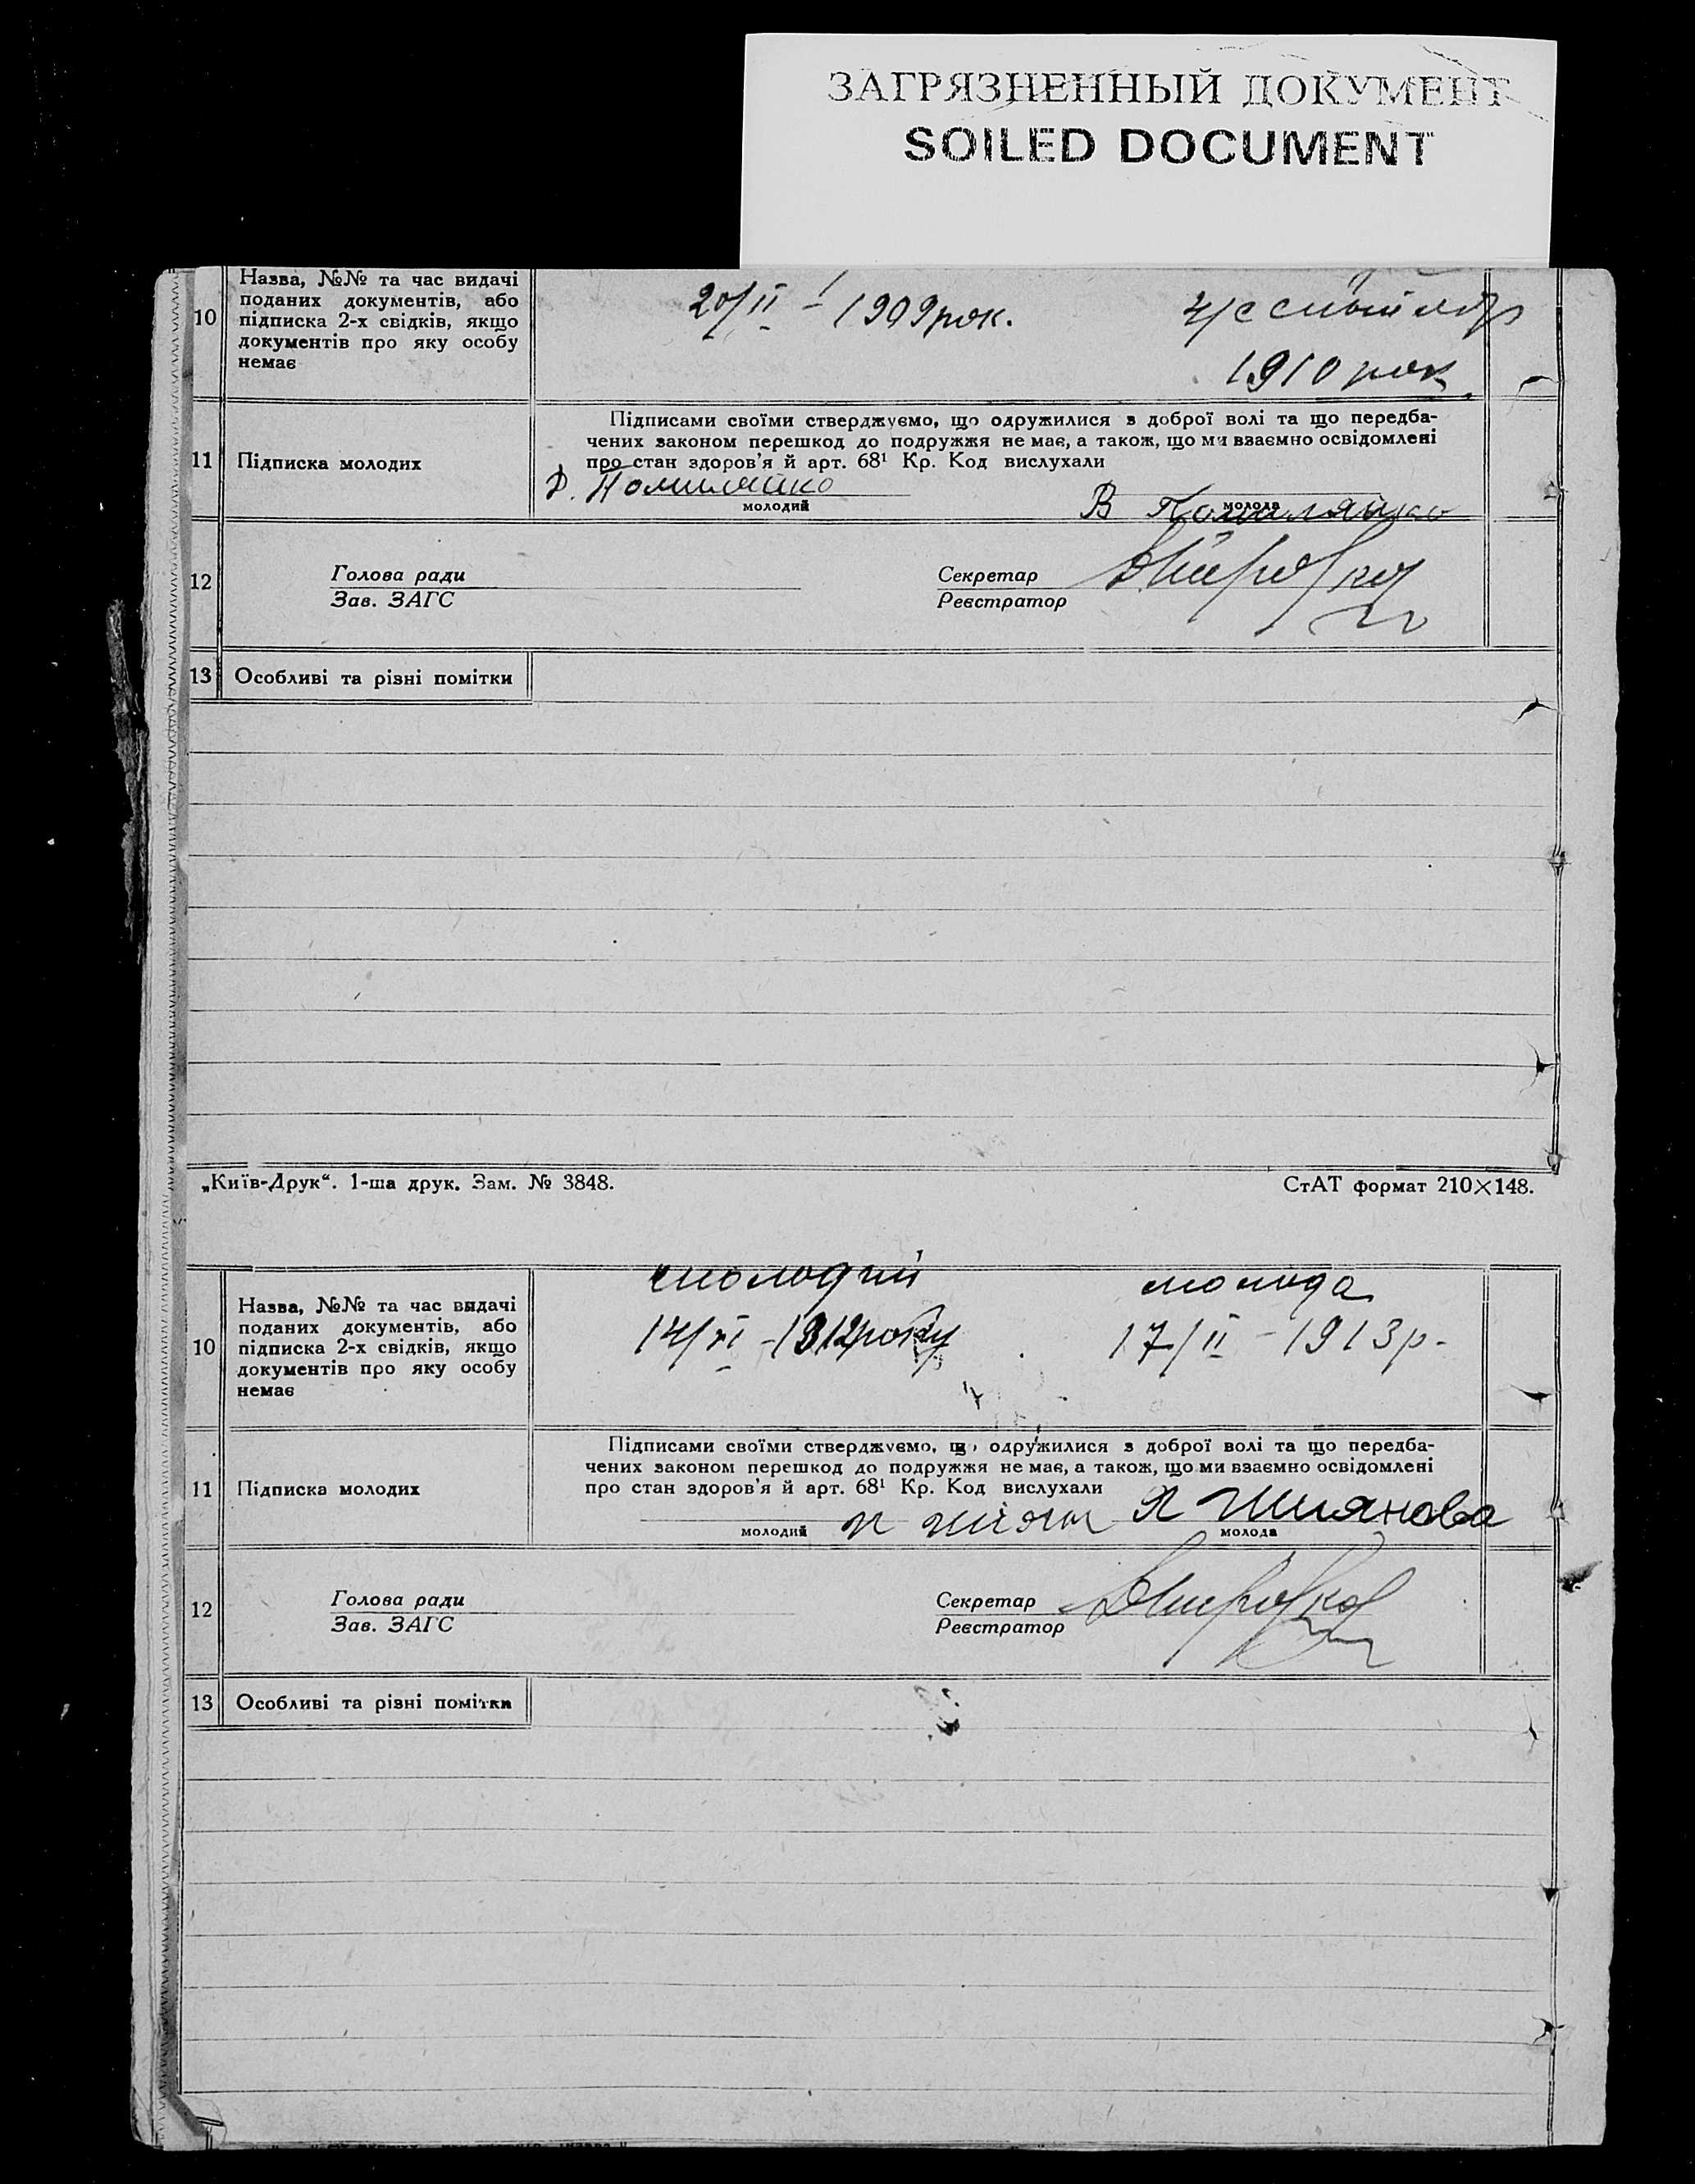 ЗАГРЯЗНЕННЫЙ ДОКУМЕНТ
SOILED DOCUMENT
10
Назва, №№ та час видачі
поданих документів, або
підписка 2-х свідків, якщо
документів про яку особу
немає
20/II – 1909 рок.
1910 рок
11
Підписка молодих
Підписами своїми стверджуємо, що одружилися з доброї волі та що передба-
чених законом перешкод до подружжя не має, а також, що ми взаємно освідомлені
про стан здоров'я й арт. 68¹ Кр. Код вислухали
молодий
В
молода
12
Голова ради
Зав. ЗАГС
Секретар
Реєстратор
13
Особливі та різні помітки
„Київ-Друк“. 1-ша друк. Зам. № 3848.
СтАТ формат 210×148.
10
Назва, №№ та час видачі
поданих документів, або
підписка 2-х свідків, якщо
документів про яку особу
немає
молодий молода
14/VI – 1912 року 17/II – 1913 р-
11
Підписка молодих
Підписами своїми стверджуємо, що одружилися з доброї волі та що передба-
чених законом перешкод до подружжя не має, а також, що ми взаємно освідомлені
про стан здоров'я й арт. 68¹ Кр. Код вислухали
молодий
молода
12
Голова ради
Зав. ЗАГС
Секретар
Реєстратор
13
Особливі та різні помітки